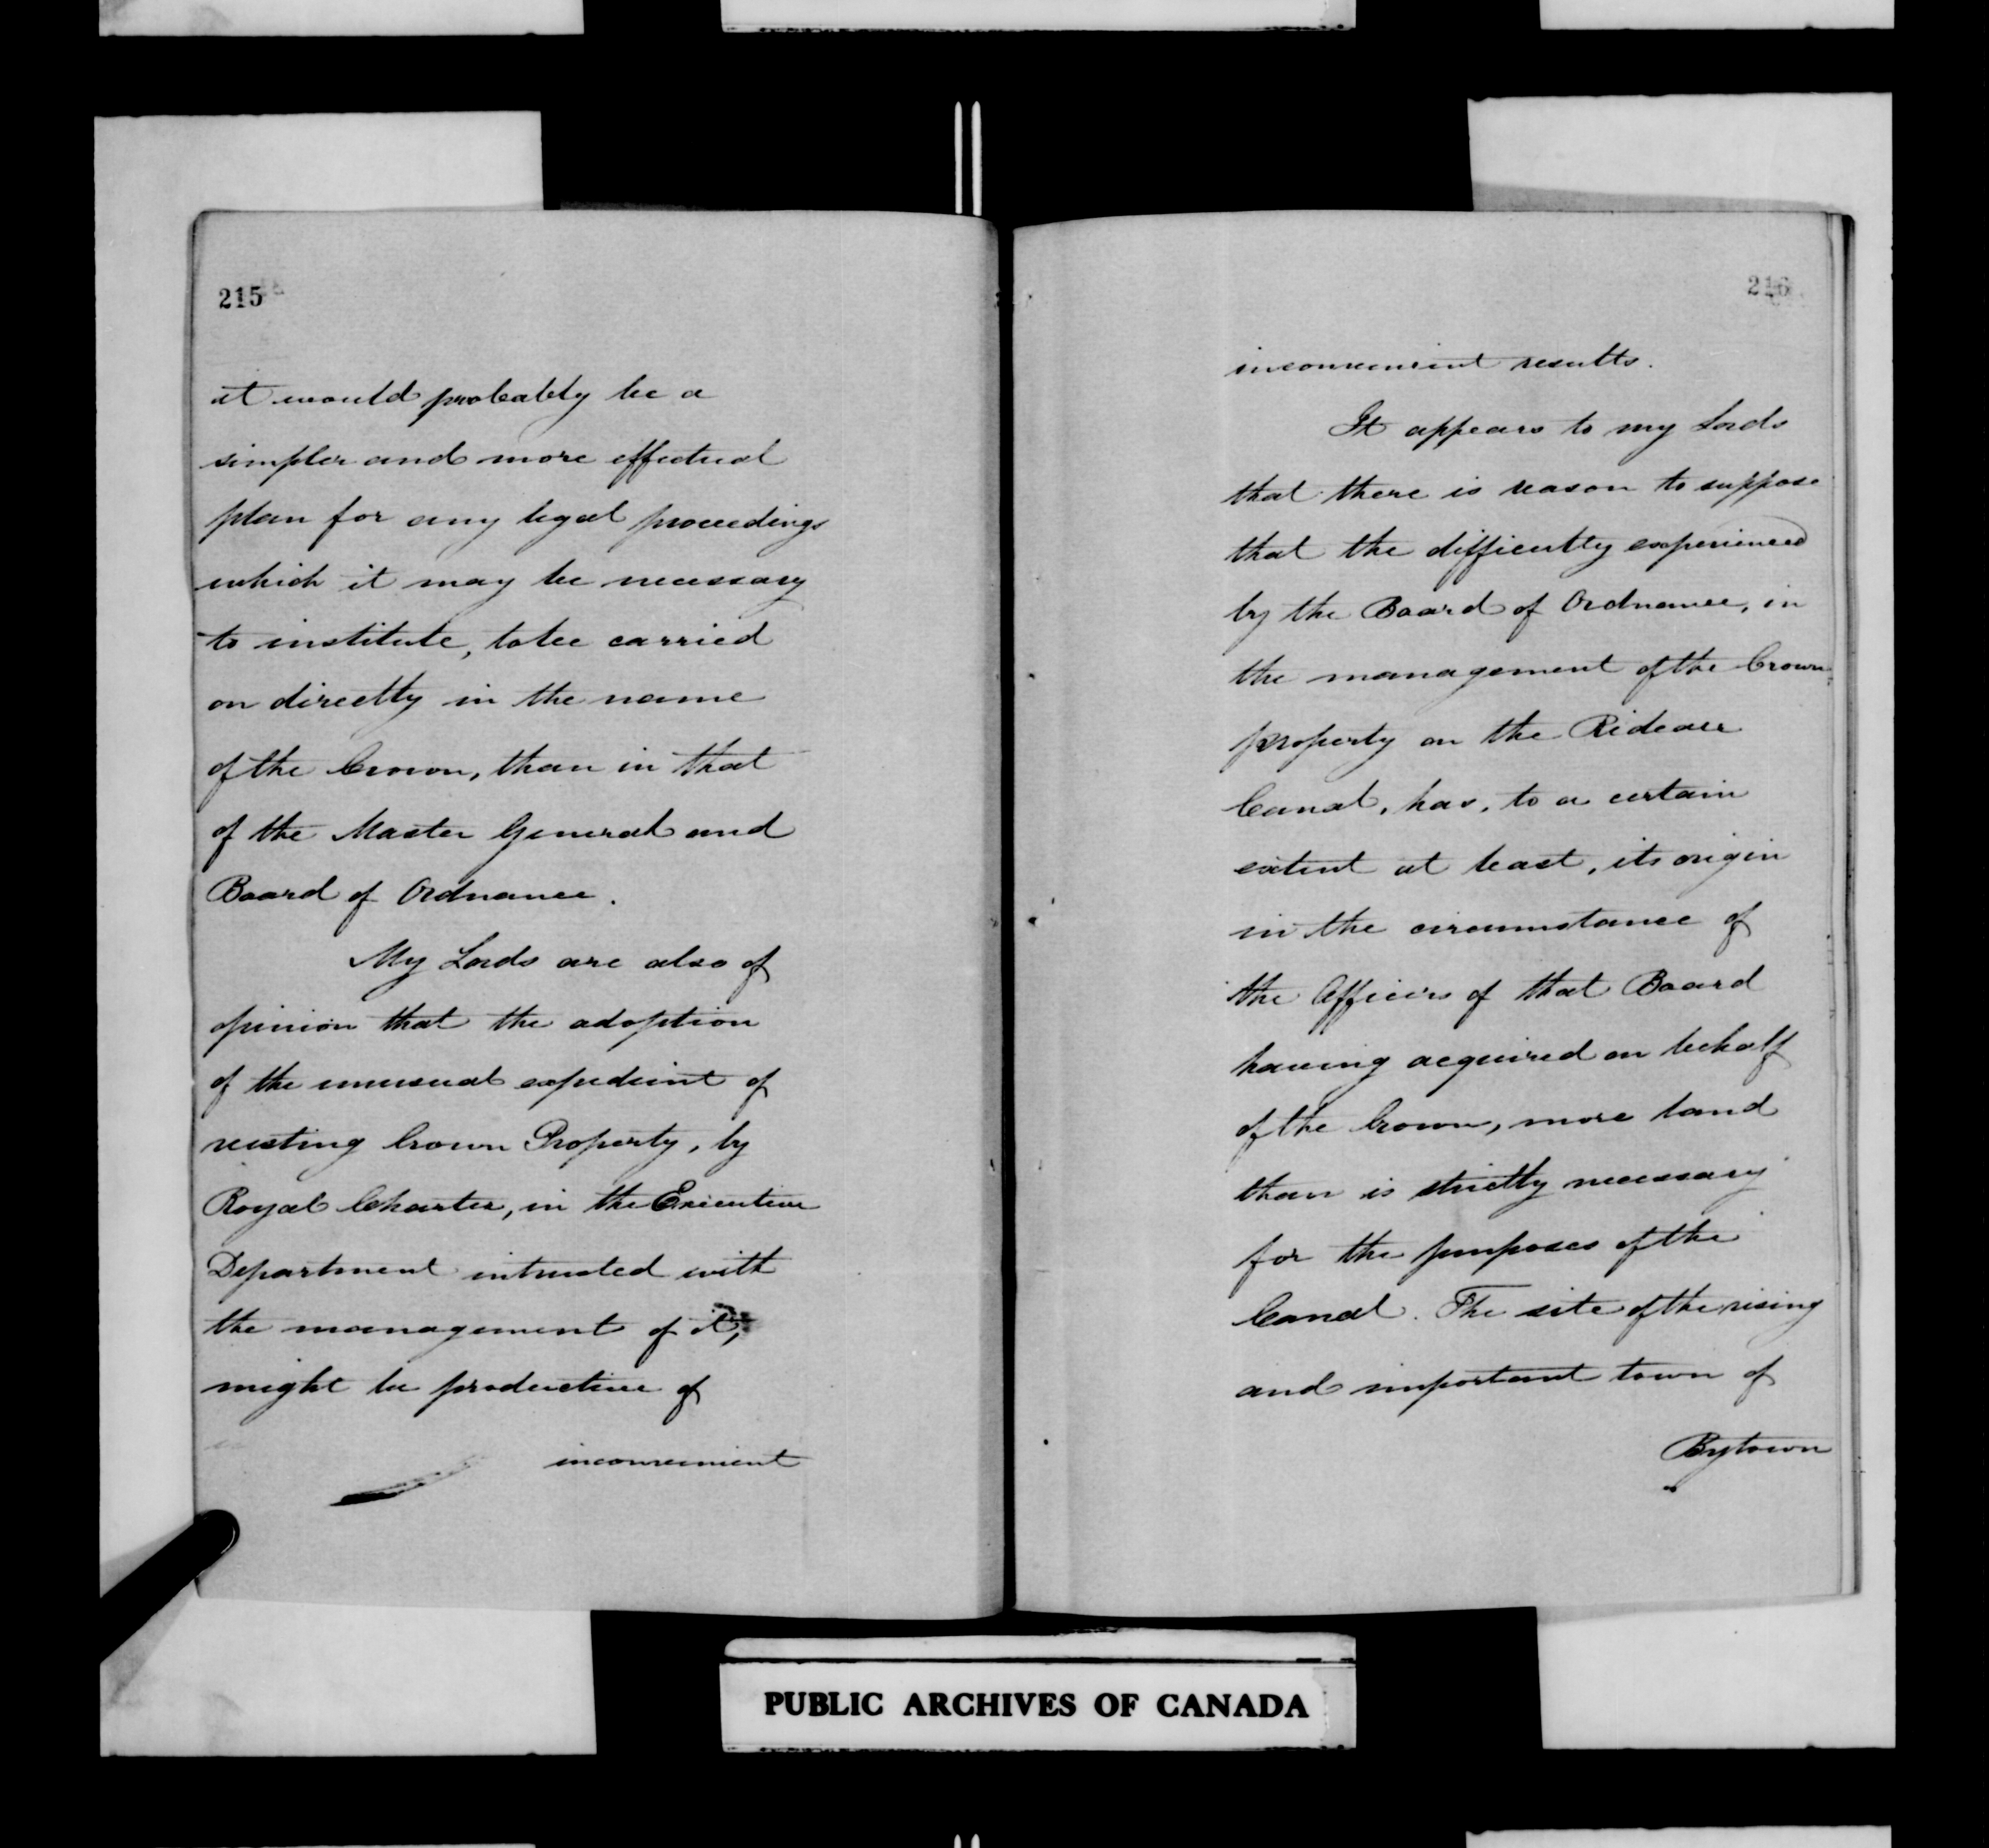 215
it would probably be a
simpler and more effectual
plan for any legal proceedings
which it may be necessary
to institute, to be carried
on directly in the name
of the Crown, than in that
of the Master General and
Board of Ordnance.
My Lords are also of
opinion that the adoption
of the unusual expedient of
vesting Crown Property, by
Royal Charter, in the Executive
Department intrusted with
the management of it,
might be productive of
inconvenient
216
inconvenient results.
It appears to my Lords
that there is reason to suppose
that the difficulty experienced
by the Board of Ordnance, in
the management of the Crown
property on the Rideau
Canal, has, to a certain
extent at least, its origin
in the circumstance of
the Officers of that Board
having acquired on behalf
of the Crown, more land
than is strictly necessary
for the purposes of the
Canal. The site of the rising
and important town of
Bytown
PUBLIC ARCHIVES OF CANADA